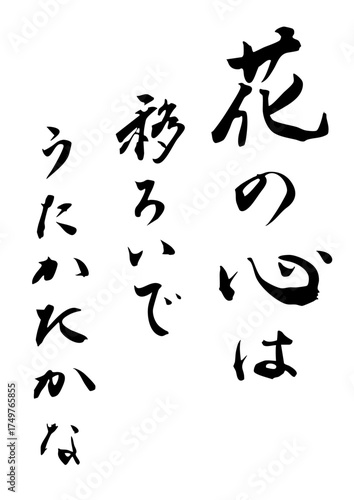 花の心は
移ろいで
うたかたかな
Adobe Stock | #1749765855